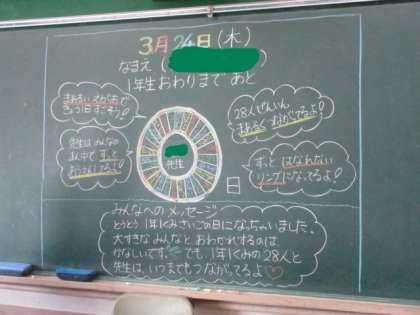 3月24日(木)
なまえ( )
1年生おわりまで あと
日
先生
28人ぜんいん
まあるく つながってるよ!
先生はみんなの
まん中で ずっと
ずっと はなれない
リングになってるよ!
みんなへの メッセージ
とうとう 1年1くみさいごの日になっちゃいました。
大すきな みんなと おわかれするのは
かなしいです。でも、1年1くみの28人と
先生は、いつまでもつながってるよ♡